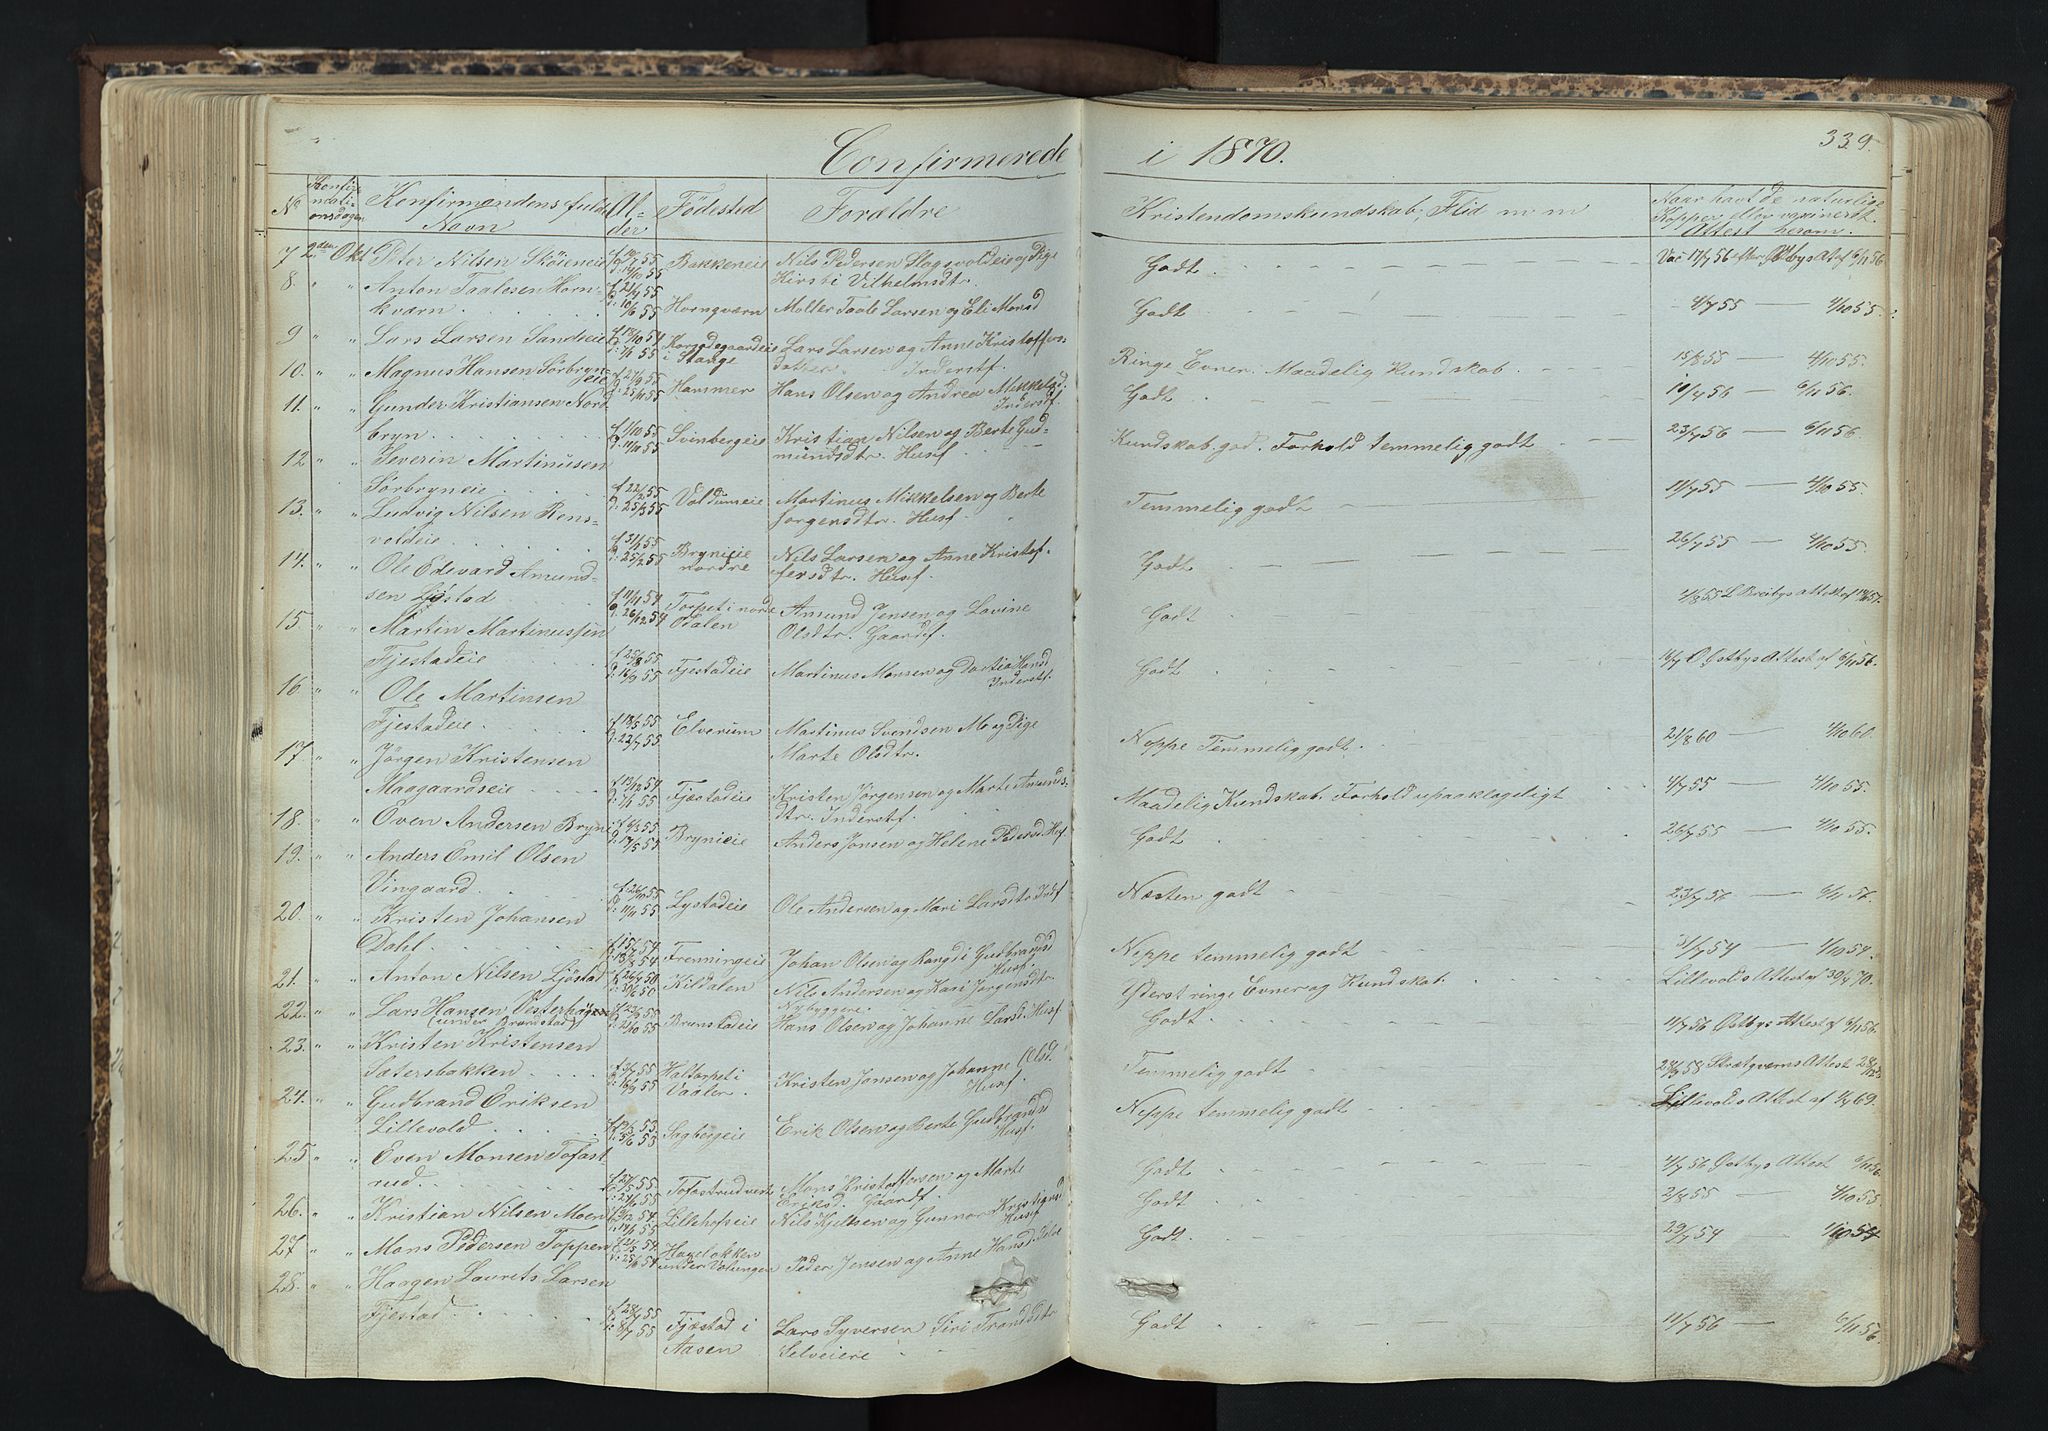 Confirmerede i 1870.
339.
No Konfirmationsdagen Konfirmandens fulde Navn Alder Fødested Forældre Kristendomskundskab, Flid m m Naar havt de naturlige Kopper eller vaxineret. Attest herom.
7 2den Okt Peter Nilsen Skörneie Bakkeneie Nils Pedersen Slagsvoldeie og Pige
Kirsti Vilhelmsdtr. Godt Vac 17/7 56 efter Østbys At af 6/11 56
8 " " Anton Taalesen Hornkværn Horngværn Møller Taale Larsen og Eli Monsd Godt 4/7 55 — 4/10 55.
9 " " Lars Larsen Sandseie Korsødegaardeie i Stange Lars Larsen og Anne Kristoffersdatter. Inderstf. Ringe Evner. Maadelig Kundskab 15/8 55 — 4/10 55.
10. " " Magnus Hansen Sörbryneie f 27/9 55 d: 25/11 55 Hammer Hans Olsen og Andrea Mikkelsd. Inderstf. Godt 10/7 56 — 6/11 56.
11. " " Gunder Kristiansen Nordbryn f 1/10 55 d: 11/11 55 Svinbergeie Kristian Nilsen og Berte Gudmundsdtr. Husf. Kundskab god. Forhold temmelig godt 23/7 56 — 6/11 56.
12 " " Severin Martinusen Sörbryneie f 22/2 55 d: 25/3 55 Voldumeie Martinus Mikkelsen og Berte Jørgensdtr. Husf. Temmelig godt 11/7 55 — 4/10 55.
13. " " Ludvig Nilsen Rensvoldeie f 31/1 55 d: 25/2 55 Brynieie nordre Nils Larsen og Anne Kristoffersdtr. Husf. Godt 26/7 55 — 4/10 55.
14. " " Ole Edevard Amundsen Ljøstad f 11/11 54 d: 26/12 54 Torpet i nordre Odalen Amund Jensen og Lovine Olsdtr. Gaardf. Godt
15. " " Martin Martinussen Fjestadeie f 25/8 55 d: 16/9 55 Fjestadeie Martinus Monsen og Dortia Hansd Inderstf. Godt 16/7 O Østbys Attest af 6/11 56.
16 " " Ole Martinsen Fjestadeie f 18/5 55 d: 22/7 55 Elverum Martinus Svendsen Mo og Pige Marte Olsdtr. Neppe Temmelig godt. 21/8 60 — 4/10 60.
17 " " Jørgen Kristensen Maagaardseie f 13/12 54 d: 1/1 55 Fjestadeie Kristen Jørgensen og Marte Amundsdtr. Inderstf. Maadelig Kundskab. Forhold upaaklageligt 4/7 55 — 4/10 55.
18. " " Even Andersen Bryni f 4/3 55 d: 17/5 55 Brynieie Anders Jonsen og Helene Pedersd. Husf. Godt 26/7 55 — 4/10 55.
19. " " Anders Emil Olsen Vingaard. d: 11/11 55 Lystadeie Ole Andersen og Mari Larsdtr Indf Næsten godt 23/7 56 — 6/11 56.
20. " " Kristen Johansen Dahl Frenningeie Johan Olsen og Rangdi Gudbrandsd Husf. Neppe temmelig godt 31/7 54 — 4/10 54.
21. " " Anton Nilsen Ljøstad Kildalen Nils Andersen og Kari Jørgensdtr. Nybyggere. Yderst ringe Evner og Kundskab. Lillevolds Attest af 30/7 70.
22. " " Lars Hansen Vesterhagen (under Brunstad) Brunstadeie Hans Olsen og Johanne Larsd. Husf Godt 11/7 56 Østbys Attest af 6/11 56.
23. " " Kristen Kristensen Sætersbakken Holtorpet i Vaaler. Kristen Jonsen og Johanne Olsd. Husf. Temmelig godt
24. " " Gudbrand Eriksen Lillevold Sagbergeie Erik Olsen og Berte Gudbrandsd Husf. Neppe temmelig godt Lillevolds Attest af 1/7 69.
25 " " Even Monsen Tofastrud Tofastrud vestre Mons Kristoffersen og Marte Eriksd. Gaardf. Godt 4/7 56 Østbys Attest 6/11 56.
26. " " Kristian Nilsen Moen Lillehofseie Nils Kjeldsen og Gunnor Kristiansd Husf Godt 2/8 55 — 4/10 55
27 " " Mons Pedersen Toppen Hagelokken under Votungen Peder Jensen og Anne Hansd. Godt 29/7 54 — 1/10 54
28. " " Haagen Laurets Larsen Fjestad f 28/4 55 d: 8/7 55 Fjæstad i Aasen Lars Syversen Siri Trondsdtr Selveiere Godt 11/7 56 — 6/11 56.